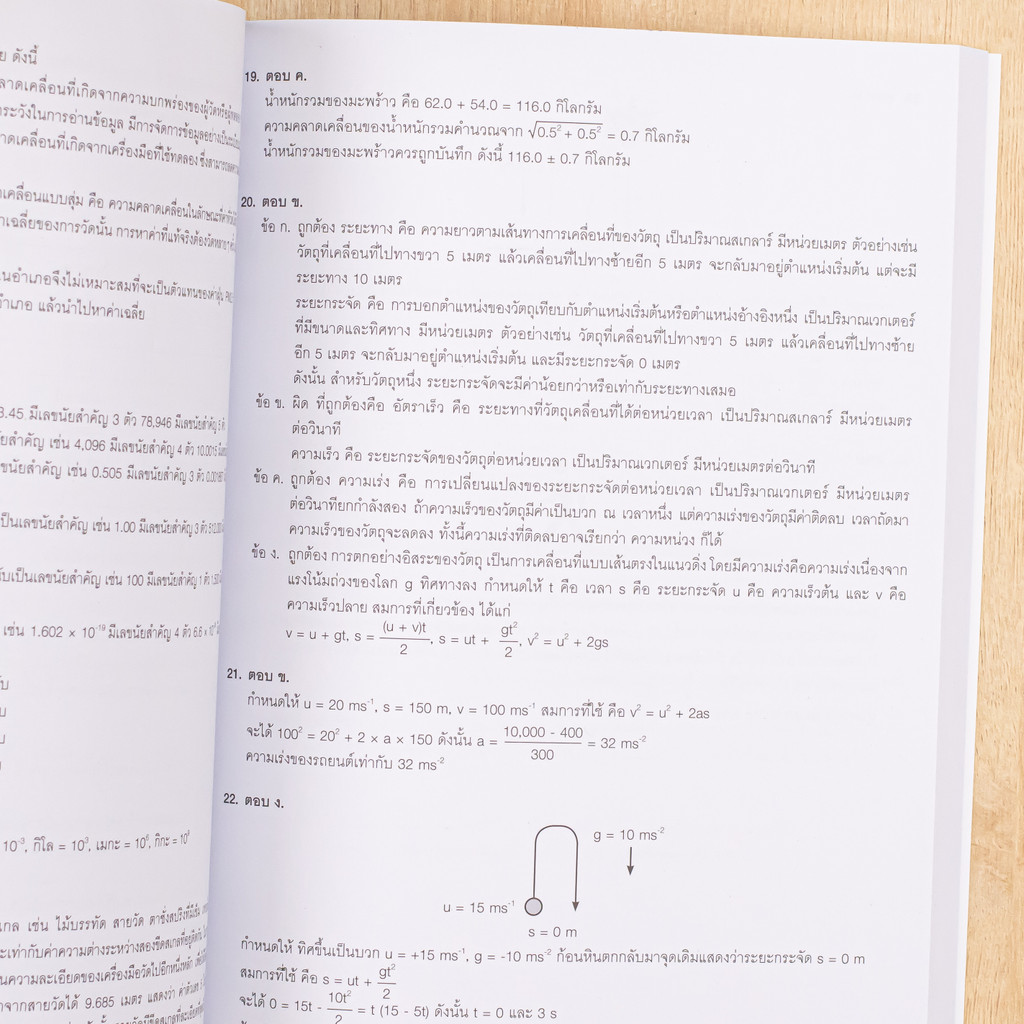 ย ดังนี้
ลาดเคลื่อนที่เกิดจากความบกพร่องของผู้วัดหรือ
ระวังในการอ่านข้อมูล มีการจัดการข้อมูลอย่าง
าดเคลื่อนที่เกิดจากเครื่องมือที่ใช้ทดลอง
เคลื่อนแบบสุ่ม คือ ความคลาดเคลื่อนในลักษณะที่
าเฉลี่ยของการวัดนั้น การหาค่าที่แท้จริงต้องวัดหลายๆ
นอำเภอจึงไม่เหมาะสมที่จะเป็นตัวแทนของค่า
ำเภอ แล้วนำไปหาค่าเฉลี่ย
3.45 มีเลขนัยสำคัญ 3 ตัว 78,946 มีเลขนัยสำคัญ 5
ัยสำคัญ เช่น 4,096 มีเลขนัยสำคัญ 4 ตัว 10.0015
ขนัยสำคัญ เช่น 0.505 มีเลขนัยสำคัญ 3 ตัว
เป็นเลขนัยสำคัญ เช่น 1.00 มีเลขนัยสำคัญ 3 ตัว
ับเป็นเลขนัยสำคัญ เช่น 100 มีเลขนัยสำคัญ 1 ตัว
เช่น 1.602 × 10⁻¹⁹ มีเลขนัยสำคัญ 4 ตัว
10⁻³, กิโล = 10³, เมกะ = 10⁶, กิกะ = 10⁹
กล เช่น ไม้บรรทัด สายวัด ตาชั่งสปริงที่มี
ะเท่ากับค่าความต่างระหว่างสองขีดสเกลที่อยู่ติดกัน
นความละเอียดของเครื่องมือวัดไปอีกหนึ่งหลัก
าจากสายวัดได้ 9.685 เมตร แสดงว่า
19. ตอบ ค.
น้ำหนักรวมของมะพร้าว คือ 62.0 + 54.0 = 116.0 กิโลกรัม
ความคลาดเคลื่อนของน้ำหนักรวมคำนวณจาก √(0.5² + 0.5²) = 0.7 กิโลกรัม
น้ำหนักรวมของมะพร้าวควรถูกบันทึก ดังนี้ 116.0 ± 0.7 กิโลกรัม
20. ตอบ ข.
ข้อ ก. ถูกต้อง ระยะทาง คือ ความยาวตามเส้นทางการเคลื่อนที่ของวัตถุ เป็นปริมาณสเกลาร์ มีหน่วยเมตร ตัวอย่างเช่น
วัตถุที่เคลื่อนที่ไปทางขวา 5 เมตร แล้วเคลื่อนที่ไปทางซ้ายอีก 5 เมตร จะกลับมาอยู่ตำแหน่งเริ่มต้น แต่จะมี
ระยะทาง 10 เมตร
ระยะกระจัด คือ การบอกตำแหน่งของวัตถุเทียบกับตำแหน่งเริ่มต้นหรือตำแหน่งอ้างอิงหนึ่ง เป็นปริมาณเวกเตอร์
ที่มีขนาดและทิศทาง มีหน่วยเมตร ตัวอย่างเช่น วัตถุที่เคลื่อนที่ไปทางขวา 5 เมตร แล้วเคลื่อนที่ไปทางซ้าย
อีก 5 เมตร จะกลับมาอยู่ตำแหน่งเริ่มต้น และมีระยะกระจัด 0 เมตร
ดังนั้น สำหรับวัตถุหนึ่ง ระยะกระจัดจะมีค่าน้อยกว่าหรือเท่ากับระยะทางเสมอ
ข้อ ข. ผิด ที่ถูกต้องคือ อัตราเร็ว คือ ระยะทางที่วัตถุเคลื่อนที่ได้ต่อหน่วยเวลา เป็นปริมาณสเกลาร์ มีหน่วยเมตร
ต่อวินาที
ความเร็ว คือ ระยะกระจัดของวัตถุต่อหน่วยเวลา เป็นปริมาณเวกเตอร์ มีหน่วยเมตรต่อวินาที
ข้อ ค. ถูกต้อง ความเร่ง คือ การเปลี่ยนแปลงของระยะกระจัดต่อหน่วยเวลา เป็นปริมาณเวกเตอร์ มีหน่วยเมตร
ต่อวินาทียกกำลังสอง ถ้าความเร็วของวัตถุมีค่าเป็นบวก ณ เวลาหนึ่ง แต่ความเร่งของวัตถุมีค่าติดลบ เวลาถัดมา
ความเร็วของวัตถุจะลดลง ทั้งนี้ความเร่งที่ติดลบอาจเรียกว่า ความหน่วง ก็ได้
ข้อ ง. ถูกต้อง การตกอย่างอิสระของวัตถุ เป็นการเคลื่อนที่แบบเส้นตรงในแนวดิ่ง โดยมีความเร่งคือความเร่งเนื่องจาก
แรงโน้มถ่วงของโลก g ทิศทางลง กำหนดให้ t คือ เวลา s คือ ระยะกระจัด u คือ ความเร็วต้น และ v คือ
ความเร็วปลาย สมการที่เกี่ยวข้อง ได้แก่
v = u + gt, s = (u + v)t/2, s = ut + gt²/2, v² = u² + 2gs
21. ตอบ ข.
กำหนดให้ u = 20 ms⁻¹, s = 150 m, v = 100 ms⁻¹ สมการที่ใช้ คือ v² = u² + 2as
จะได้ 100² = 20² + 2 × a × 150 ดังนั้น a = 10,000 - 400/300 = 32 ms⁻²
ความเร่งของรถยนต์เท่ากับ 32 ms⁻²
22. ตอบ ง.
g = 10 ms⁻²
u = 15 ms⁻¹
s = 0 m
กำหนดให้ ทิศขึ้นเป็นบวก u = +15 ms⁻¹, g = -10 ms⁻² ก้อนหินตกกลับมาจุดเดิมแสดงว่าระยะกระจัด s = 0 m
สมการที่ใช้ คือ s = ut + gt²/2
จะได้ 0 = 15t - 10t²/2 = t (15 - 5t) ดังนั้น t = 0 และ 3 s